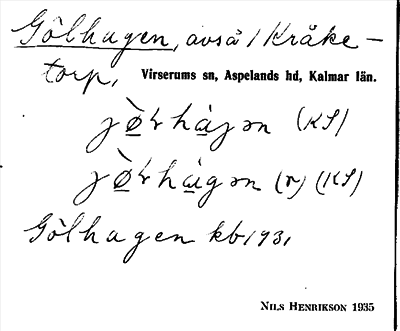 Gölhagen, avså i Kråke-
torp, Virserums sn, Aspelands hd, Kalmar län.
(KS)
(r) (KS)
Gölhagen kb 1931
NILS HENRIKSON 1935